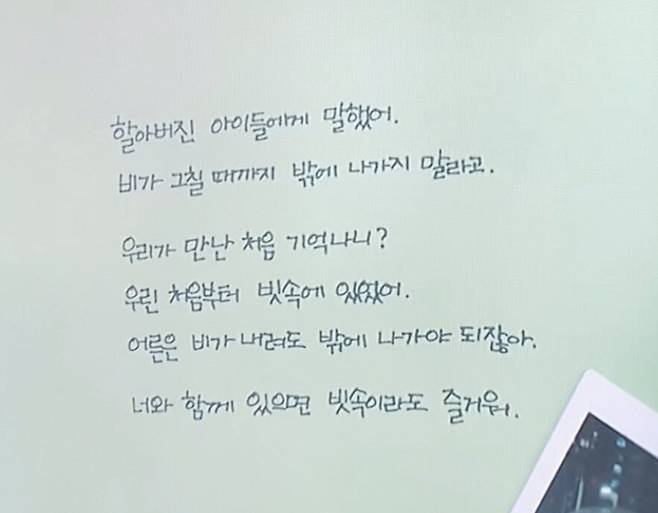 할아버진 아이들에게 말했어.
비가 그칠 때까지 밖에 나가지 말라고.
우리가 만난 처음 기억나니?
우린 처음부터 빗속에 있었어.
어른은 비가 내려도 밖에 나가야 되잖아.
너와 함께 있으면 빗속이라도 즐거워.